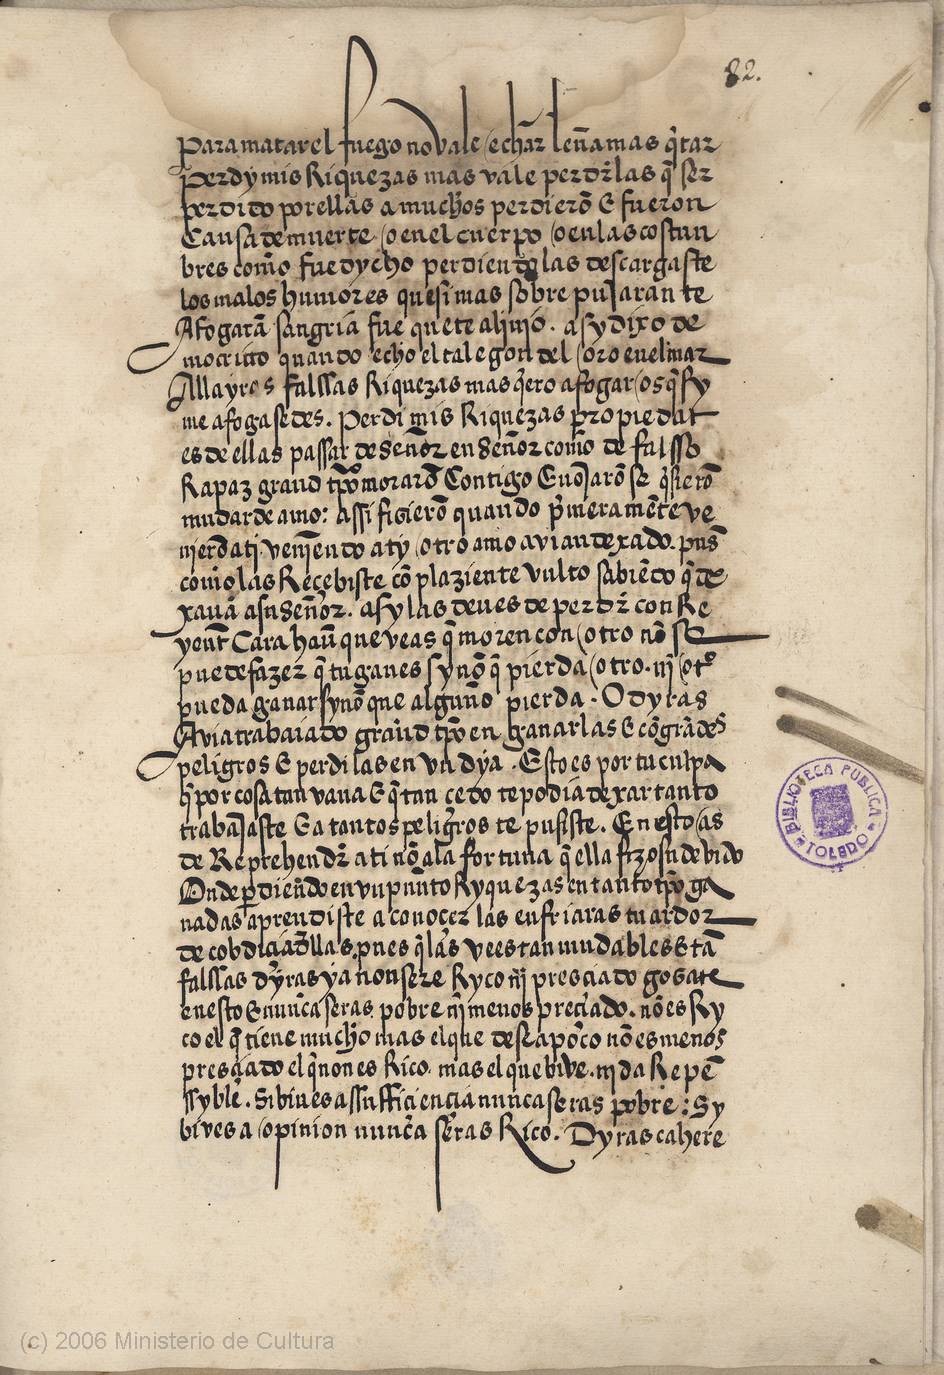 82.
para matar el fuego no vale echar leña mas q̃tar
perdy mis Riquezas mas vale perdr̃las q̃ ser
perdido por ellas a muchos perdierõ E fueron
causa de muerte o en el cuerpo o en las costun
bres como fue dycho perdiendo las descargaste
los malos humores que si mas sobre pujaran te
Afogarã sangria fue que te alinio. asy dixo de
mocrito quando echo el talegon del oro en el mar
Allayros falssas Riquezas mas q̃ero afogar os q̃ sy
me afogasedes. Perdi mis Riquezas propiedat
es de ellas passar de señor en señor como de falsso
Rapaz grand tp̃o morarõ contigo E uojarõ se q̃sierõ
mudar de amo: Assi ficierõ quando p̃meramẽte ve
nierõ a ti. veniendo a ty otro amo avian dexado. pues
como las Recebiste cõ plaziente vulto sabiẽdo q̃ de
xauã a su señor. asy las deues de perdr̃ con Re
yent cara haũ que veas q̃ moren con otro nõ se
puede fazer q̃ tu ganes synõ q̃ pierda otro. ni otro
pueda ganar synõ que alguno pierda. O dyras
Avia trabaiado grand tp̃o en ganarlas E cõ grãdes
peligros E perdilas en vn dya. Esto es por tu culpa
q̃ por cosa tan vana E q̃ tan cedo te podia dexar tanto
trabajaste E a tantos peligros te pusiste. En esto as
de Reprehendr̃ a ti nõ a la fortuna q̃ ella fizo su devido
Onde perdiendo en vn punto Ryquezas en tanto tp̃o ga
nadas aprendiste a conocer las enfriaras tu ardor
de cobdiciar̃llas. pues q̃ las vees tan mudables E tã
falssas dyras ya non sere Ryco ni presciado gosate
en esto E nunca seras pobre ni menos preciado. nõ es Ry
co el q̃ tiene mucho mas el que desea poco nõ es menos
presciado el q̃ non es Rico. mas el que bive. vida Repẽ
ssyble. Si biues a ssufficiencia nunca seras pobre: Sy
bives a opinion nunca seras Rico. Dyras cahere
BIBLIOTECA PUBLICA
TOLEDO
(c) 2006 Ministerio de Cultura